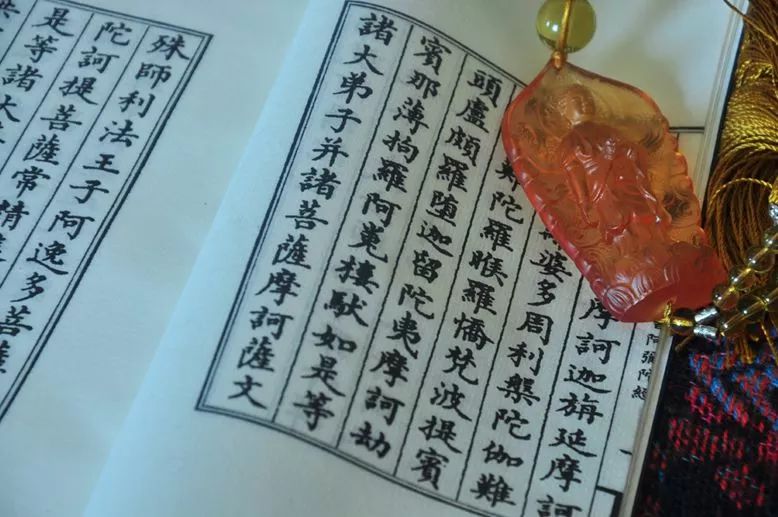 阿彌陀經
摩訶迦旃延摩訶
婆多周利槃陀伽難
陀羅睺羅憍梵波提賓
頭盧頗羅堕迦留陀夷摩訶劫
賓那薄拘羅阿㝹樓馱如是等
諸大弟子并諸菩薩摩訶薩文
殊師利法王子阿逸多菩薩
陀訶提菩薩常精
是等諸大